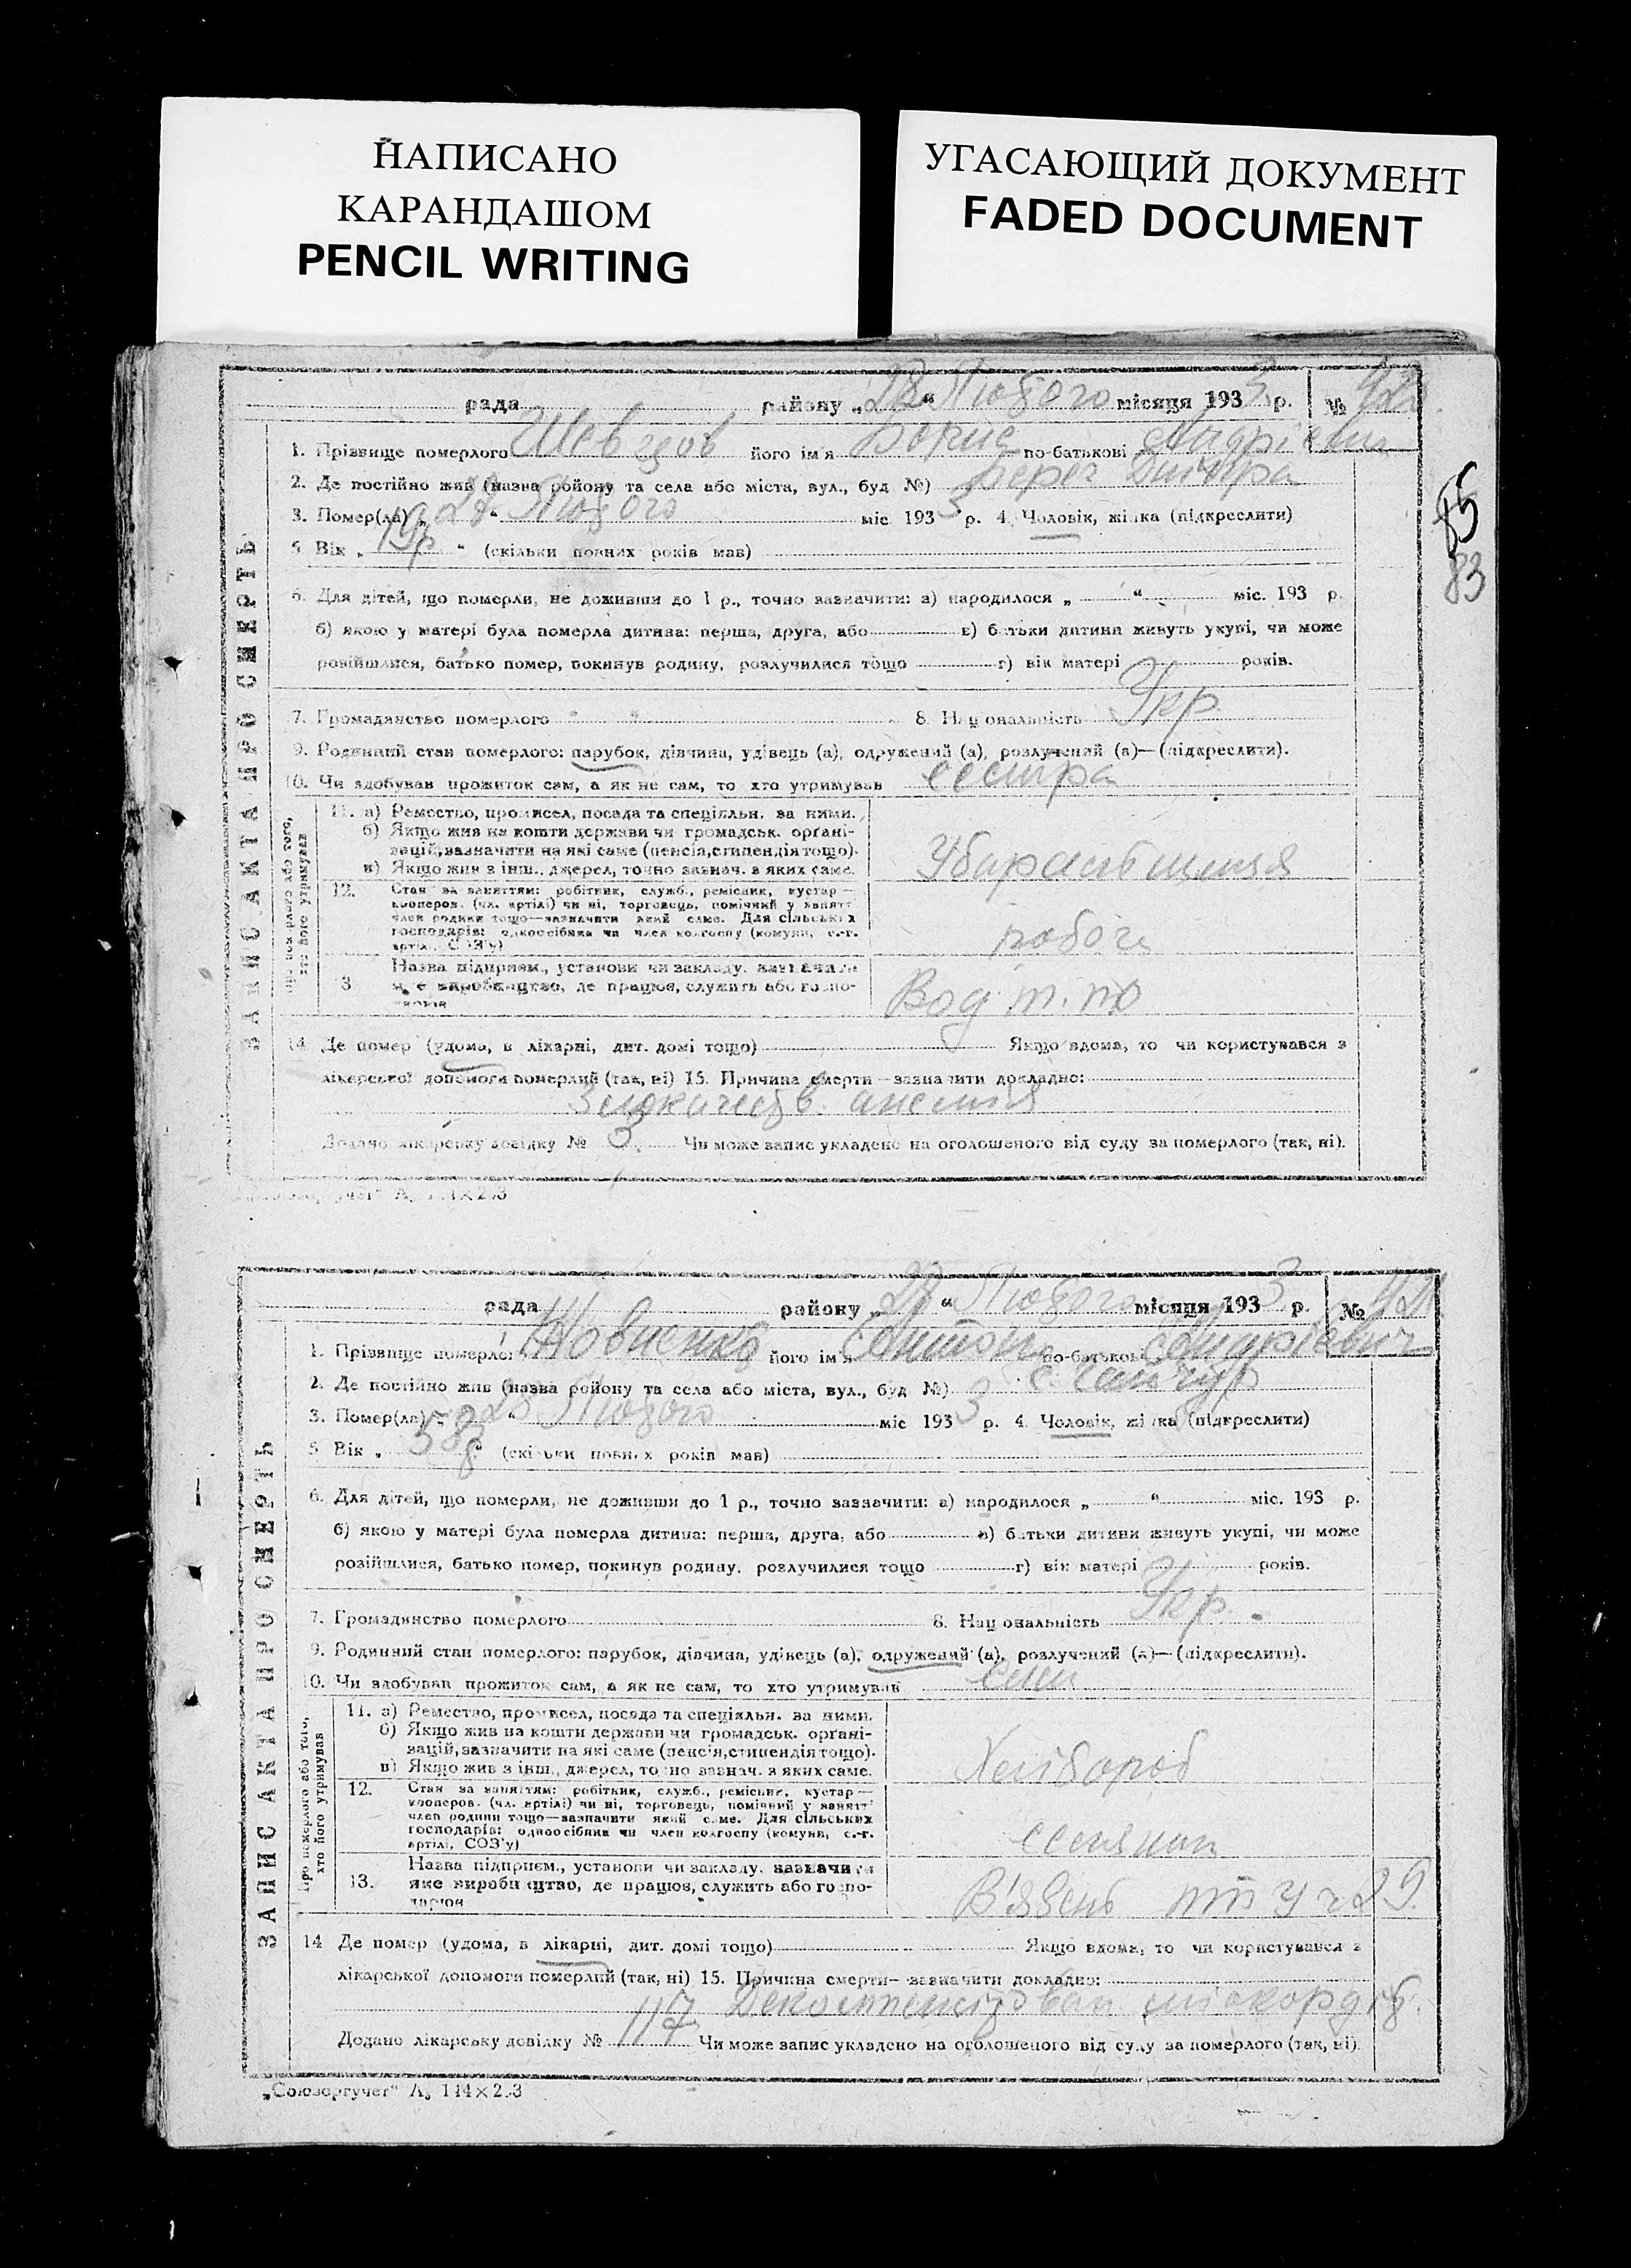 НАПИСАНО
КАРАНДАШОМ
PENCIL WRITING
УГАСАЮЩИЙ ДОКУМЕНТ
FADED DOCUMENT
рада району „28“ Лютого місяця 1933 р. №
1. Прізвище померлого Шевцов його ім'я Борис по-батькові Андрієвич
2. Де постійно жив (назва району та села або міста, вул., буд №) Берег Дніпра
3. Помер(ла) „28“ Лютого міс 1933 р. 4. Чоловік, жінка (підкреслити)
5 Вік „19р“ (скільки повних років мав)
85
83
6. Для дітей, що померли, не доживши до 1 р., точно зазначити: а) народилося „ “ міс. 193 р.
б) якою у матері була померла дитина: перша, друга, або в) батьки дитини живуть укупі, чи може
розійшлися, батько помер, покинув родину, розлучилися тощо г) вік матері років.
7. Громадянство померлого 8. Національність Укр
9. Родинний стан померлого: парубок, дівчина, удівець (а), одружений (а), розлучений (а)—(підкреслити).
10. Чи здобував прожиток сам, а як не сам, то хто утримував сестра
ЗАПИС АКТА ПРО СМЕРТЬ
11. а) Ремество, промисел, посада та спеціяльн. за ними.
б) Якщо жив на кошти держави чи громадськ. орґані-
зацій, зазначити на які саме (пенсія, стипендія тощо).
в) Якщо жив з інш., джерел, точно зазнач. з яких саме.
12. Стан за заняттям: робітник, служб., ремісник, кустар—
кооперов. (чл. артілі) чи ні, торговець, помічний у занятт
член родини тощо—зазначити який саме. Для сільських
господарів: одноосібник чи член колгоспу (комуни, с.-г.
артілі, СОЗ'у)
робоч
3 Назва підприєм., установи чи закладу. зазначити
яке виробництво, де працюв, служить або госпо-
Вод. т. то
14 Де помер (удома, в лікарні, дит. домі тощо) Якщо вдома, то чи користувався з
лікарської допомоги померлий (так, ні) 15. Причина смерти—зазначити докладно:
анемія
Додано лікарську довідку № 3 Чи може запис укладено на оголошеного від суду за померлого (так, ні).
рада району „28“ Лютого місяця 1933 р. № 421
1. Прізвище померлого Жовненко його ім'я Антон по-батькові Андрієвич
2. Де постійно жив (назва району та села або міста, вул., буд №)
3. Помер(ла) „28“ Лютого міс 1933 р. 4. Чоловік, жінка (підкреслити)
5 Вік „58р“ (скільки повних років мав)
6. Для дітей, що померли, не доживши до 1 р., точно зазначити: а) народилося „ “ міс. 193 р.
б) якою у матері була померла дитина: перша, друга, або в) батьки дитини живуть укупі, чи може
розійшлися, батько помер, покинув родину, розлучилися тощо г) вік матері років.
7. Громадянство померлого 8. Національність Укр.
9. Родинний стан померлого: парубок, дівчина, удівець (а), одружений (а), розлучений (а)—(підкреслити).
10. Чи здобував прожиток сам, а як не сам, то хто утримував
ЗАПИС АКТА ПРО СМЕРТЬ
Про померлого або того,
хто його утримував
11. а) Ремество, промисел, посада та спеціяльн. за ними.
б) Якщо жив на кошти держави чи громадськ. орґані-
зацій, зазначити на які саме (пенсія, стипендія тощо).
в) Якщо жив з інш., джерел, точно зазнач. з яких саме.
Хлібороб
12. Стан за заняттям: робітник, служб., ремісник, кустар—
кооперов. (чл. артілі) чи ні, торговець, помічний у занятті
член родини тощо—зазначити який саме. Для сільських
господарів: одноосібник чи член колгоспу (комуни, с.-г.
артілі, СОЗ'у)
селянин
13. Назва підприєм., установи чи закладу. зазначити
яке виробництво, де працюв, служить або госпо-
дарюв
В'язень
14 Де помер (удома, в лікарні, дит. домі тощо) Якщо вдома, то чи користувався з
лікарської допомоги померлий (так, ні) 15. Причина смерти—зазначити докладно:
Декомпенсізован міокордіт.
Додано лікарську довідку № 117 Чи може запис укладено на оголошеного від суду за померлого (так, ні).
„Союзоргучет“ А₅ 144×2.3